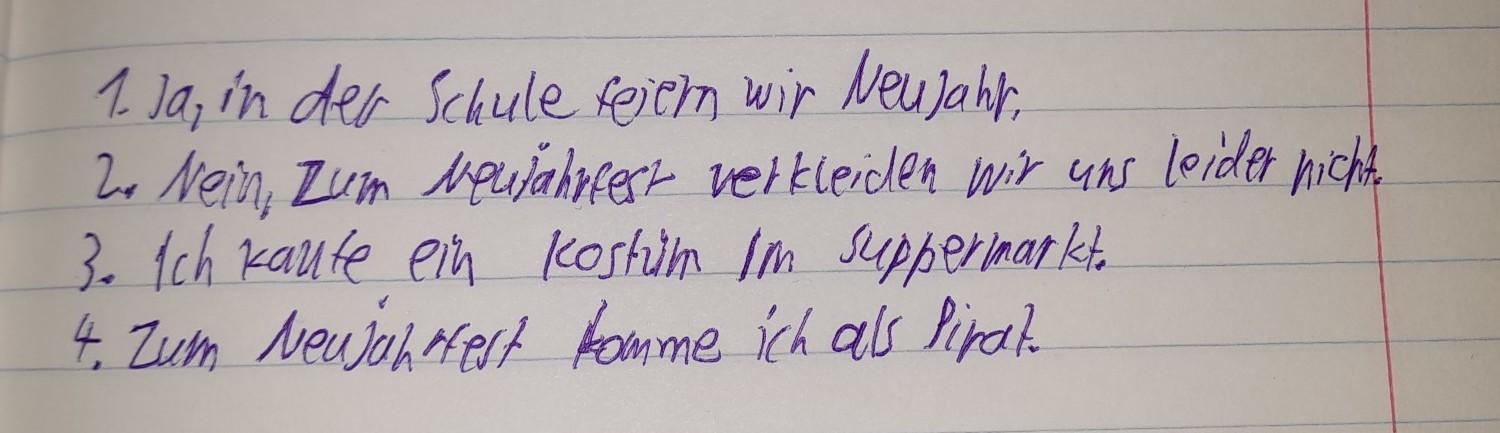 1. Ja, in der Schule feiern wir Neujahr.
2. Nein, zum Neujahrfest verkleiden wir uns leider nicht.
3. Ich kaufe ein Kostüm im Suppermarkt.
4. Zum Neujahrfest komme ich als Pirat.